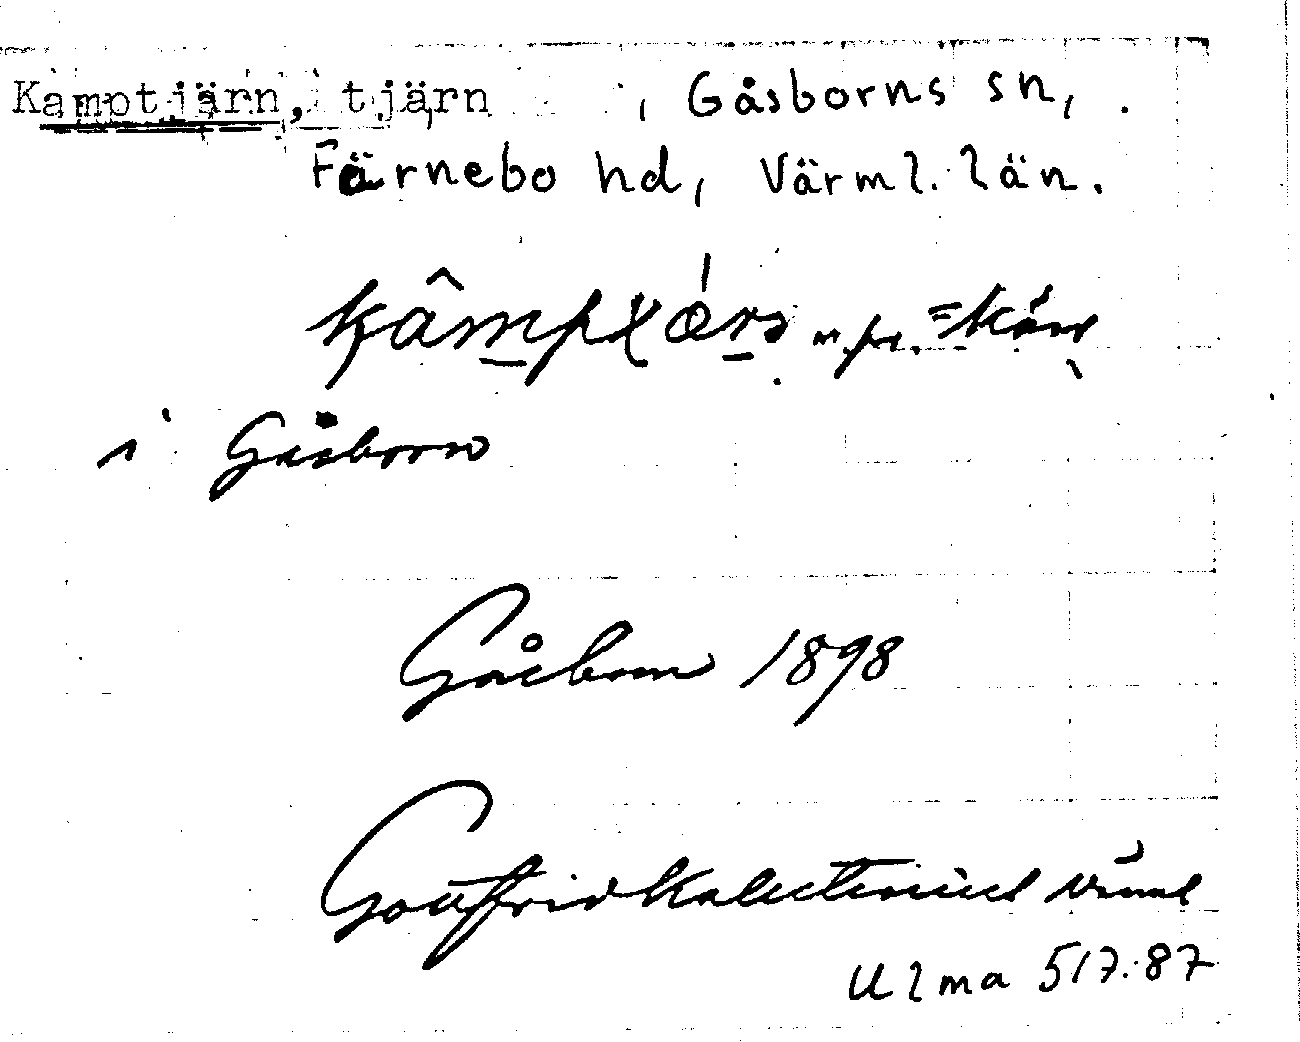 Kamptjärn, tjärn, Gåsborns sn,
Färnebo hd, Värml. län.
n. pr.
i Gåsborn
Gåsborn 1898
Gottfrid Kallstenius
Ulma 517:87